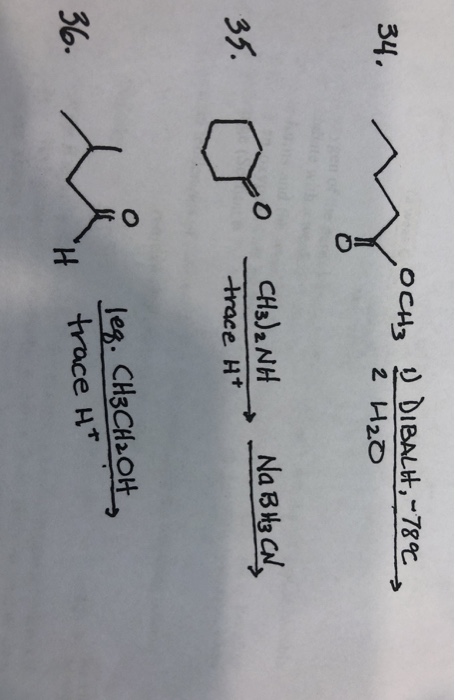 34.
O
OCH3
1) DIBALH, -78°C
2 H2O
35.
O
CH3)2NH
trace H+
NaBH3CN
36.
O
H
1eq. CH3CH2OH
trace H+